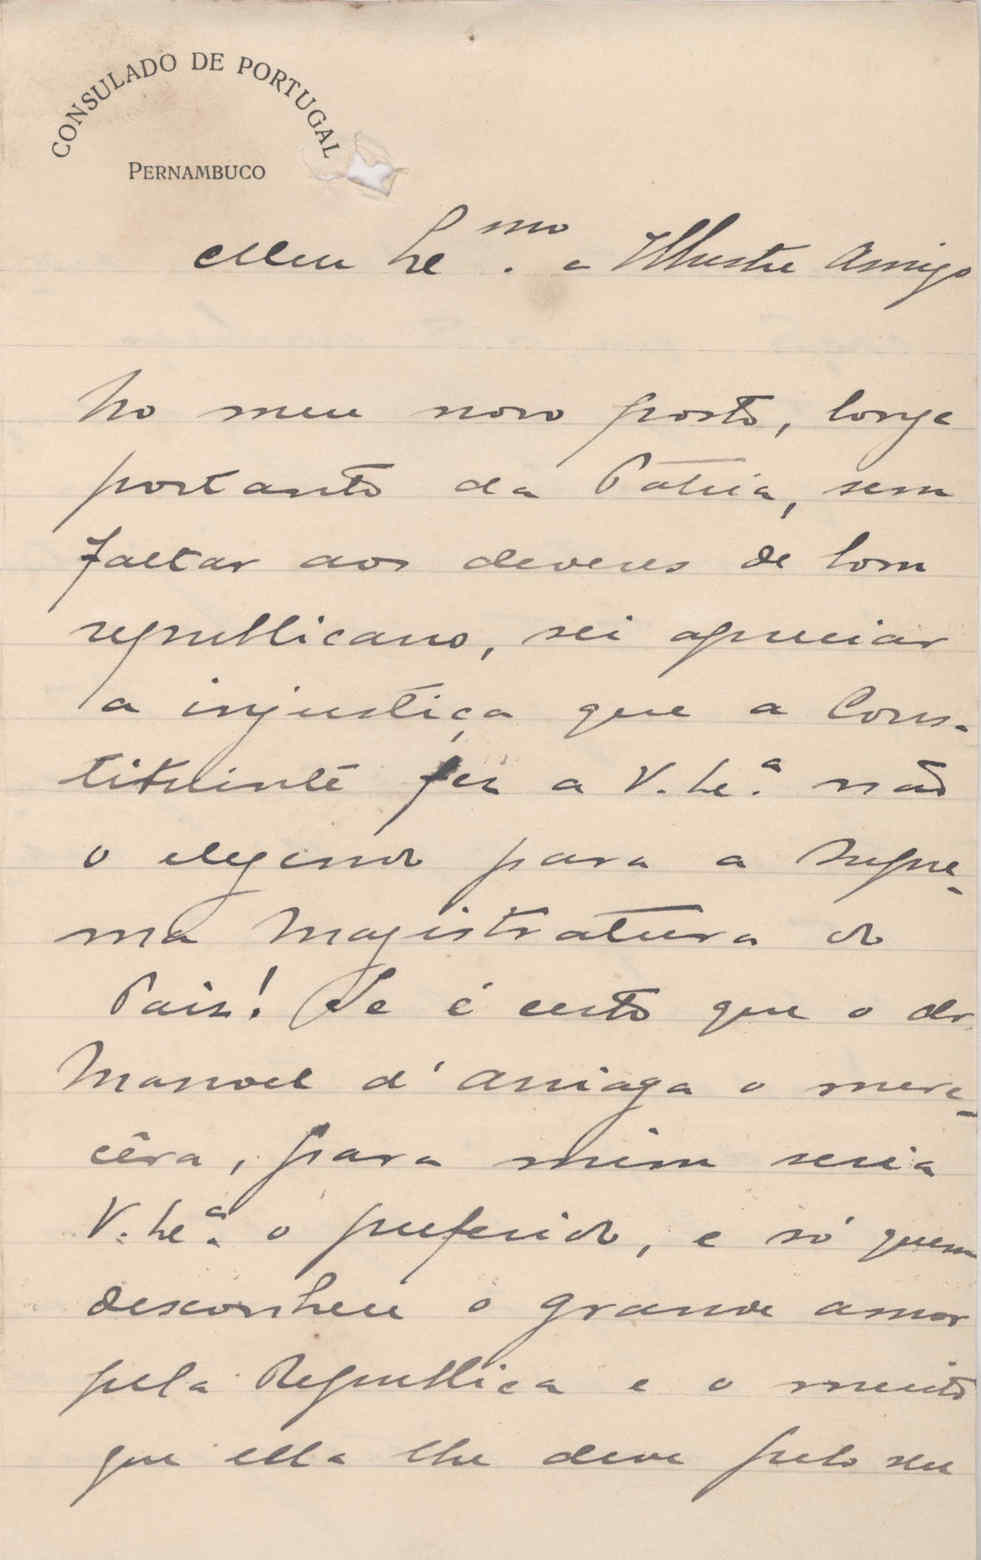 CONSULADO DE PORTUGAL
PERNAMBUCO
Meu Ex.mo e Illustre Amigo
No meu novo posto, longe
portanto da Patria, sem
faltar aos deveres de bom
republicano, sei apreciar
a injustiça que a Cons-
tituinte fez a V. Ex.a não
o elegendo para a supre-
ma Magistratura do
Paiz! Se é certo que o dr.
Manoel d'Arriaga o mere-
cêra, para mim seria
V. Ex.a o preferido, e só quem
desconhece o grande amor
pela Republica e o muito
que ella lhe deve pelo seu